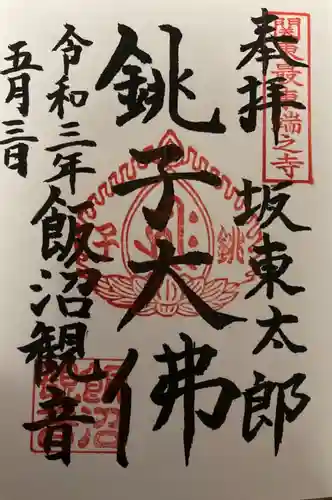 関東最東端之寺
奉拝 坂東太郎
銚子大佛
銚子
飯沼観音
令和三年
五月三日
飯沼観音